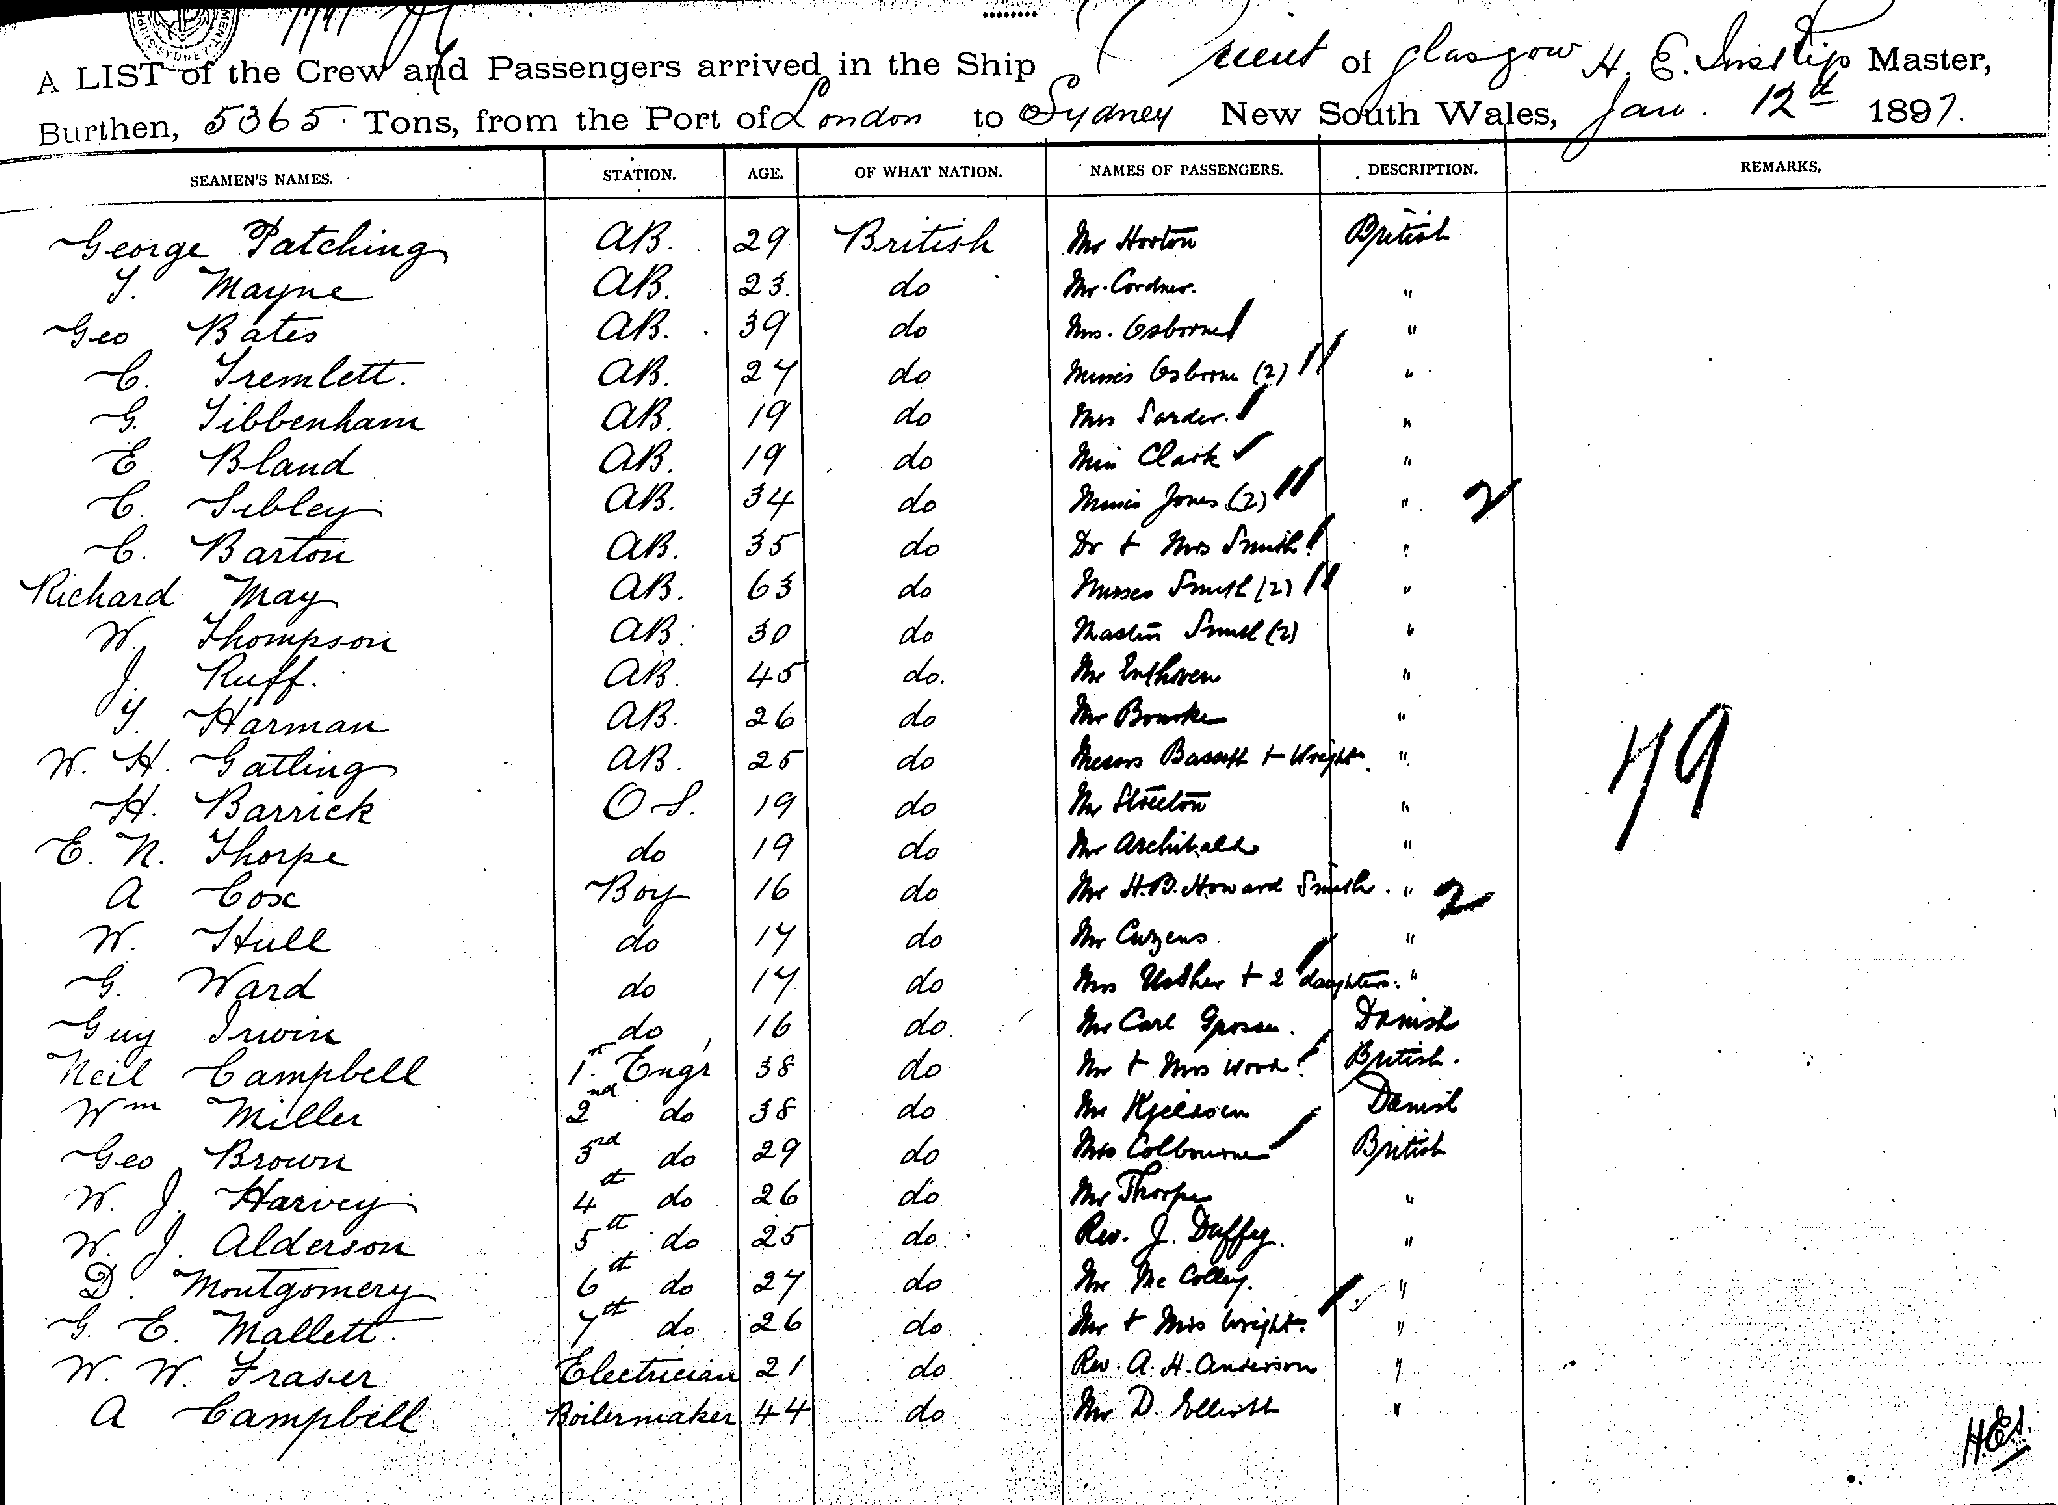 A LIST of the Crew and Passengers arrived in the Ship Orient of Glasgow H. E. Inskip Master,
Burthen, 5365 Tons, from the Port of London to Sydney New South Wales, Jan. 12th 1897.
SEAMEN'S NAMES. STATION. AGE. OF WHAT NATION. NAMES OF PASSENGERS. DESCRIPTION. REMARKS.
George Patching AB. 29 British Mr Horton British
T. Mayne AB. 23. do Mr. Cordner. "
Geo Bates AB. 39 do Mrs. Osborne "
C. Tremlett. AB. 27 do Misses Osborne (2) "
G. Tibbenham AB. 19 do Mrs "
E Bland AB. 19 do Miss Clark "
C. Sibley AB. 34 do Misses Jones (2) " 2
C. Barton AB. 35 do Dr + Mrs Smith "
Richard May AB. 63 do Misses Smith (2) "
W. Thompson AB. 30 do Masters Smith (2) "
J. Ruff. AB. 45 do. Mr Enthoven "
Y. Harman AB. 26 do Mr Bourke "
W. H. Gatling AB. 25 do Messrs Bassett + Wright. "
79
H. Barrick O S. 19 do Mr Streeton "
E. N. Thorpe do 19 do Mr Archibald "
A Cox Boy 16 do Mr H. B. Howard Smith. " 2
W. Hull do 17 do Mr Cuzens "
G. Ward do 17 do Mrs Usther + 2 daughters. "
Guy Irwin do 16 do. Mr Carl Danish
Neil Campbell 1st Engr 38 do Mr + Mrs Wood British.
Wm Miller 2nd do 38 do Mr Danish
Geo Brown 3rd do 29 do Mrs Colbourne British
W. J. Harvey 4th do 26 do Mr Thorpe "
W. J. Alderson 5th do 25 do Rev. J. Duffy. "
D. Montgomery 6th do 27 do Mr Mc Colley. "
G. E. Mallett. 7th do 26 do Mr + Mrs Wright. "
W. W. Fraser Electrician 21 do Rev. A. H. Anderson "
A Campbell Boilermaker 44 do Mr D. Elliott "
H.E.I.